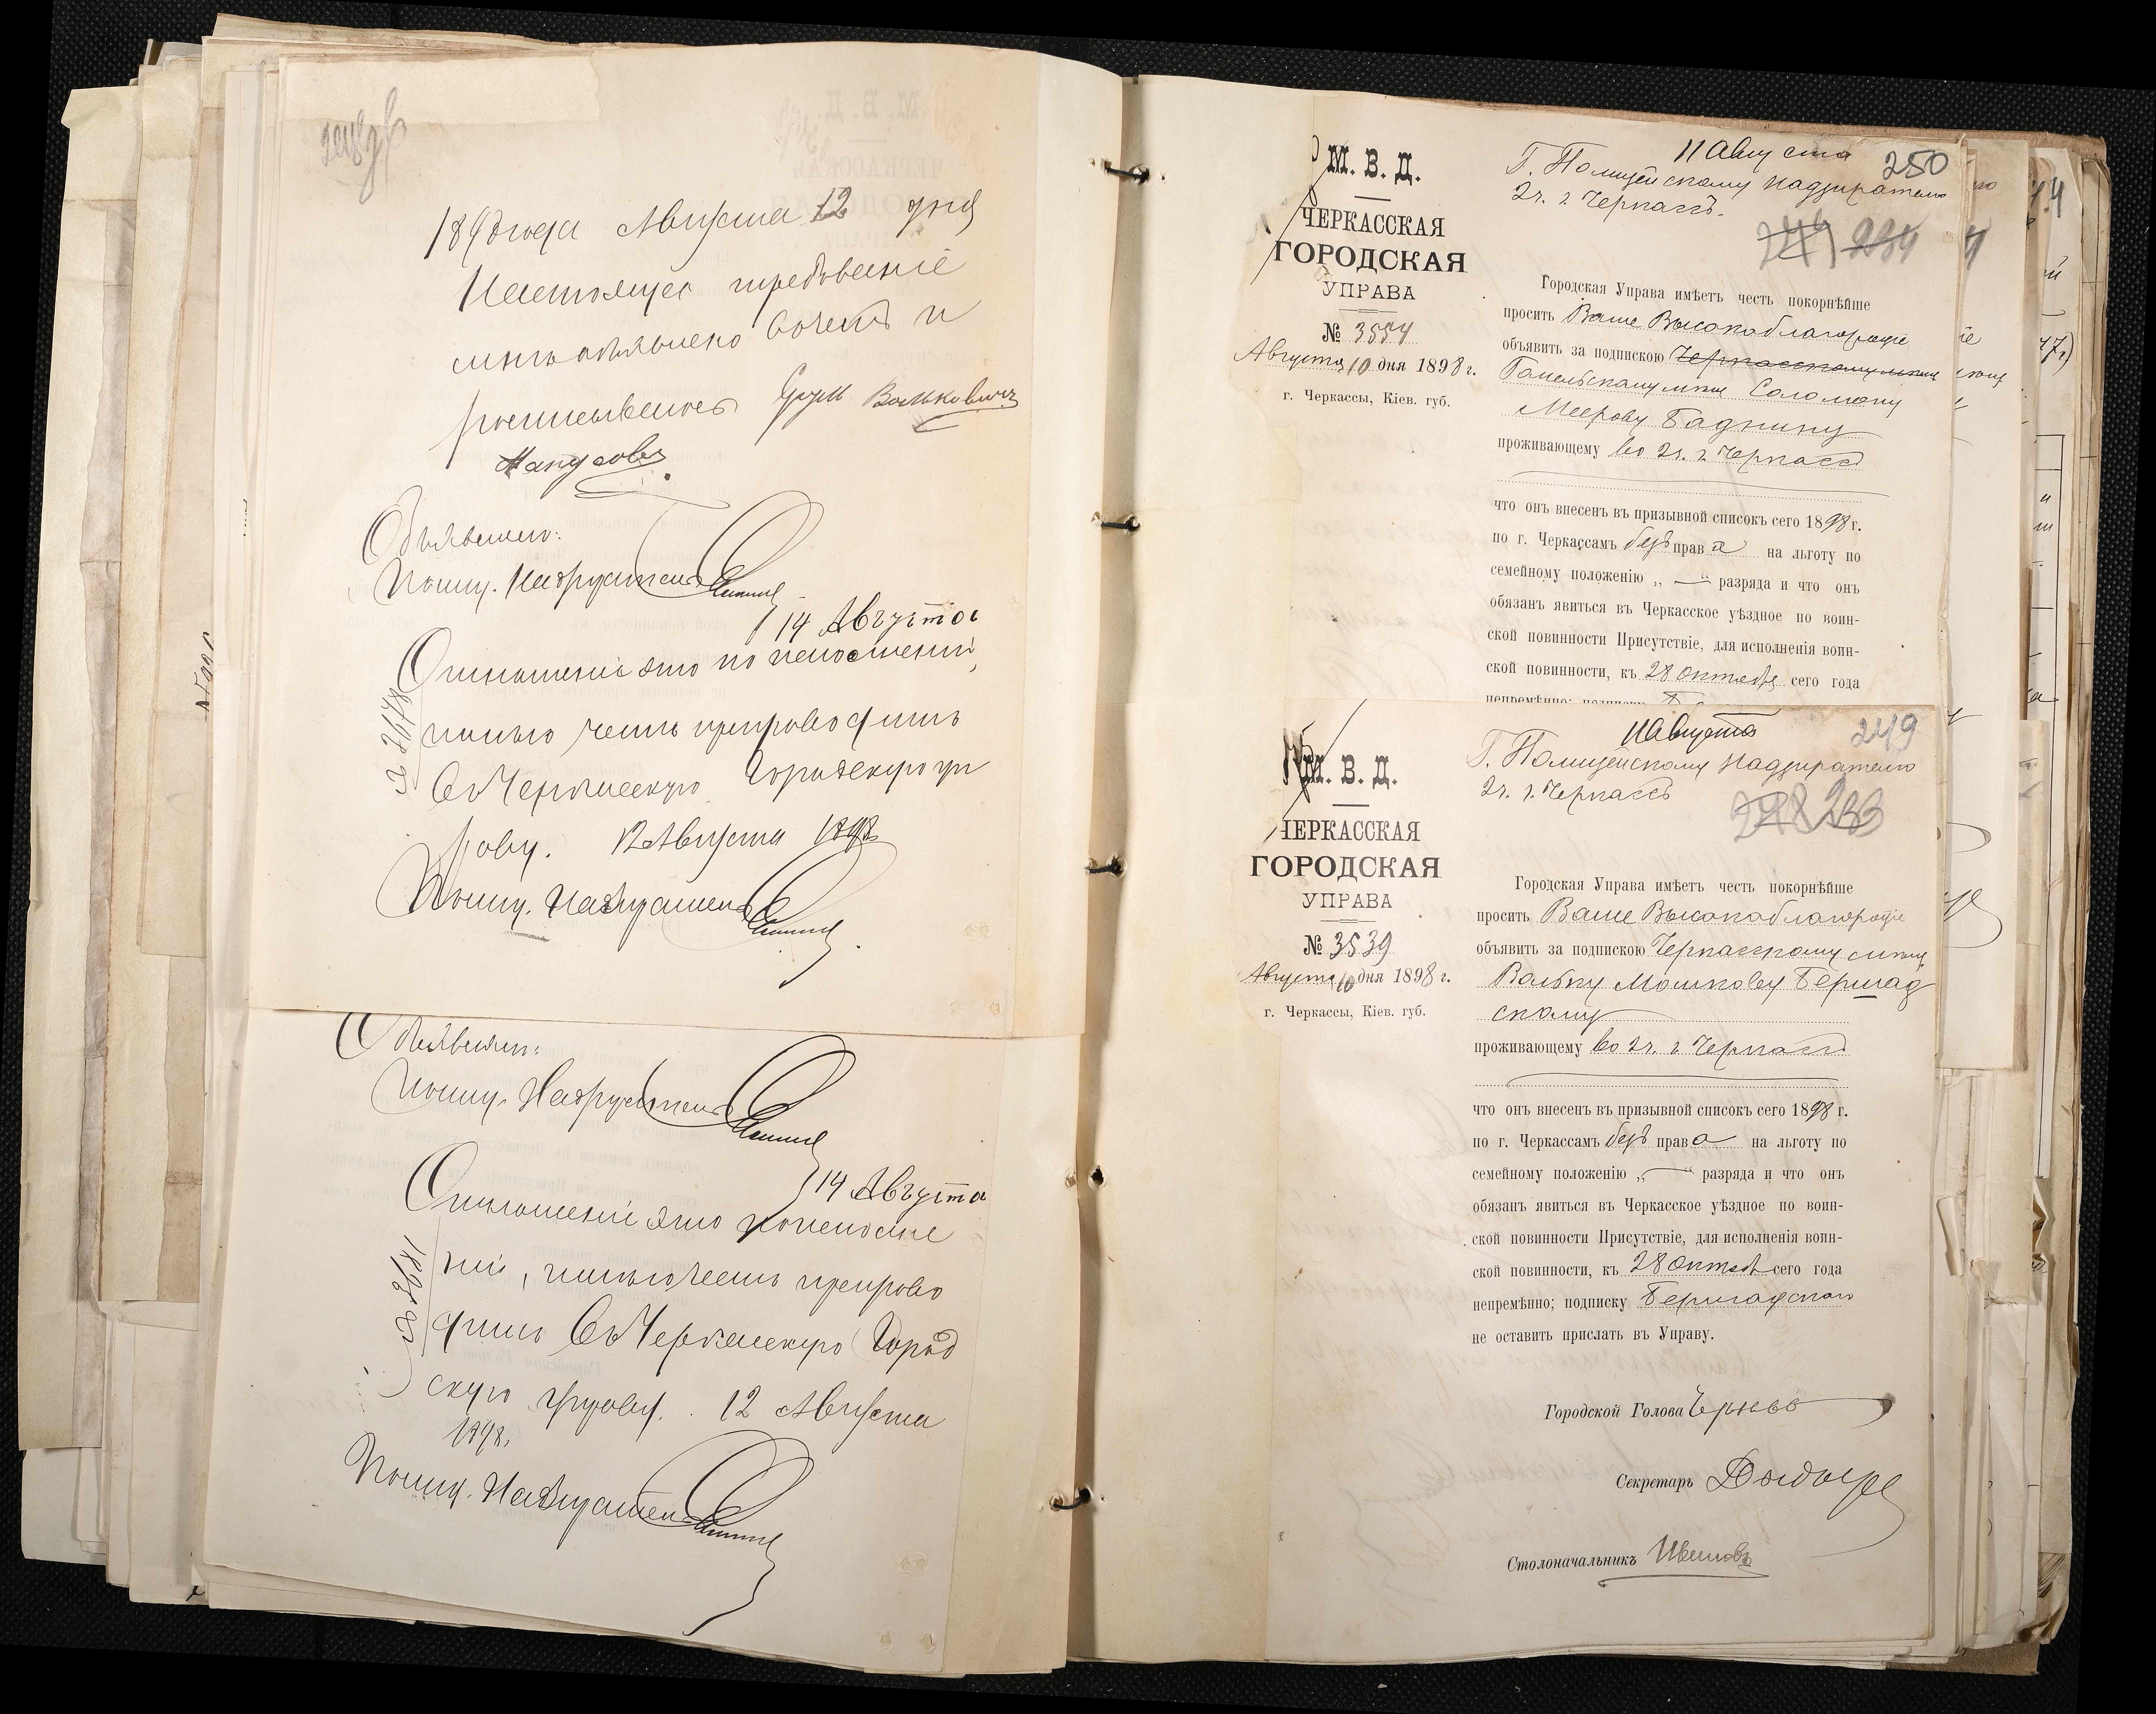 248 об
1898 года Августа 12 дня
Настоящее требование
мне объявлено в чем и
росписываюсь
Мандсовъ
Объявилъ:
Полиц. Надзиратель
14 Августа
Отношение это по исполнении,
№ 2678
имею честь препроводить
Въ Черкасскую Городскую уп
раву. 12 Августа 1898
Полиц. Надзиратель
Объявилъ:
Полиц. Надзиратель
14 Августа
Отношение это по исполне
нии, имею честь препрово
№ 2681
дить Въ Черкасскую Город
скую управу. 12 Августа
1898.
Полиц. Надзиратель
М. В. Д.
ЧЕРКАССКАЯ
ГОРОДСКАЯ
УПРАВА
№ 3554
Августа 10 дня 1898 г.
г. Черкассы, Кіев. губ.
11 Августа
250
Г. Полицейскому Надзирателю
2 ч. г. Черкассъ.
249 234
Городская Управа имѣетъ честь покорнѣйше
просить Ваше Высокоблагородіе
объявить за подпискою Черкасскому мѣщ
Соломону
Меерову Баднину
проживающему во 2 ч. г. Черкассъ
что онъ внесенъ въ призывной списокъ сего 1898 г.
по г. Черкассамъ безъ права на льготу по
семейному положенію „ — “ разряда и что онъ
обязанъ явиться въ Черкасское уѣздное по воин-
ской повинности Присутствіе, для исполненія воин-
ской повинности, къ 28 Октября сего года
непремѣнно; подписку
М. В. Д.
ЧЕРКАССКАЯ
ГОРОДСКАЯ
УПРАВА
№ 3539
Августа 10 дня 1898 г.
г. Черкассы, Кіев. губ.
11 Августа
249
Г. Полицейскому Надзирателю
2 ч. г. Черкассъ
248 233
Городская Управа имѣетъ честь покорнѣйше
просить Ваше Высокоблагородіе
объявить за подпискою Черкасскому мѣщ.
Вольку Мошкову Бершад
скому
проживающему во 2 ч. г. Черкассъ
что онъ внесенъ въ призывной списокъ сего 1898 г.
по г. Черкассамъ безъ права на льготу по
семейному положенію „ — “ разряда и что онъ
обязанъ явиться въ Черкасское уѣздное по воин-
ской повинности Присутствіе, для исполненія воин-
ской повинности, къ 28 Октяб сего года
непремѣнно; подписку Бершадскаго
не оставить прислать въ Управу.
Городской Голова
Секретарь
Столоначальникъ Ивановъ